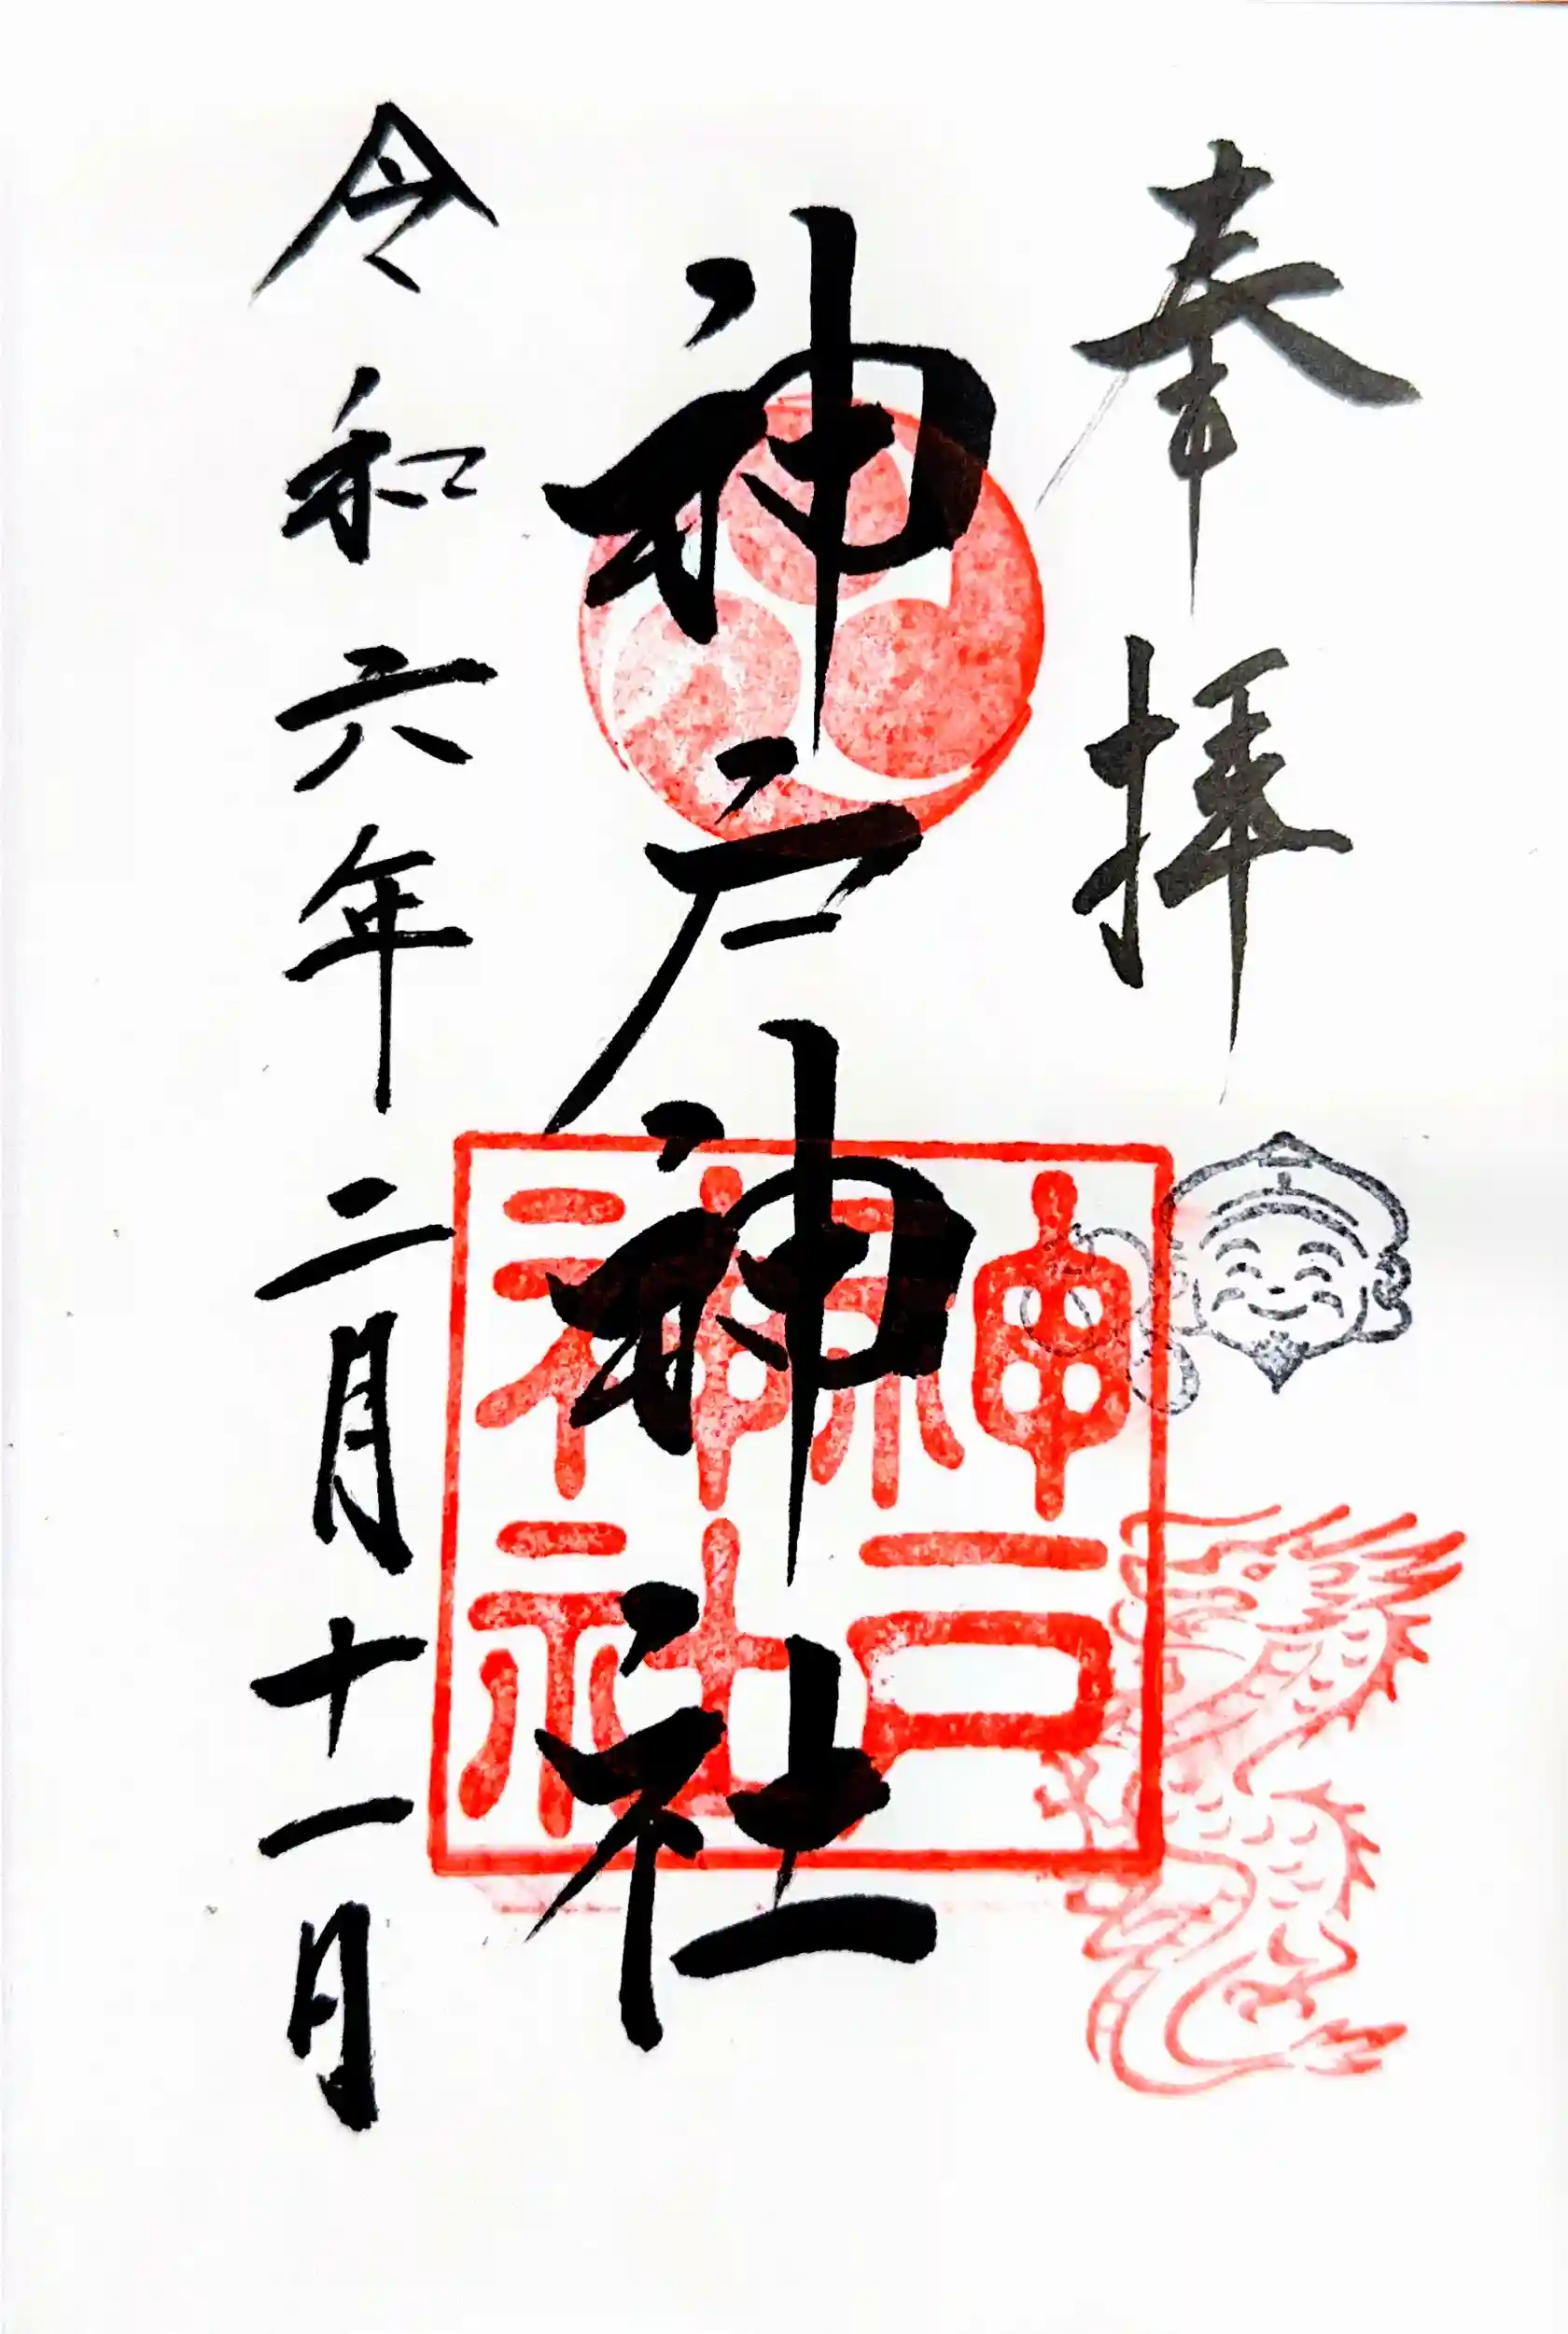 奉拝
神戸神社
神戸
神社
令和六年二月十一日